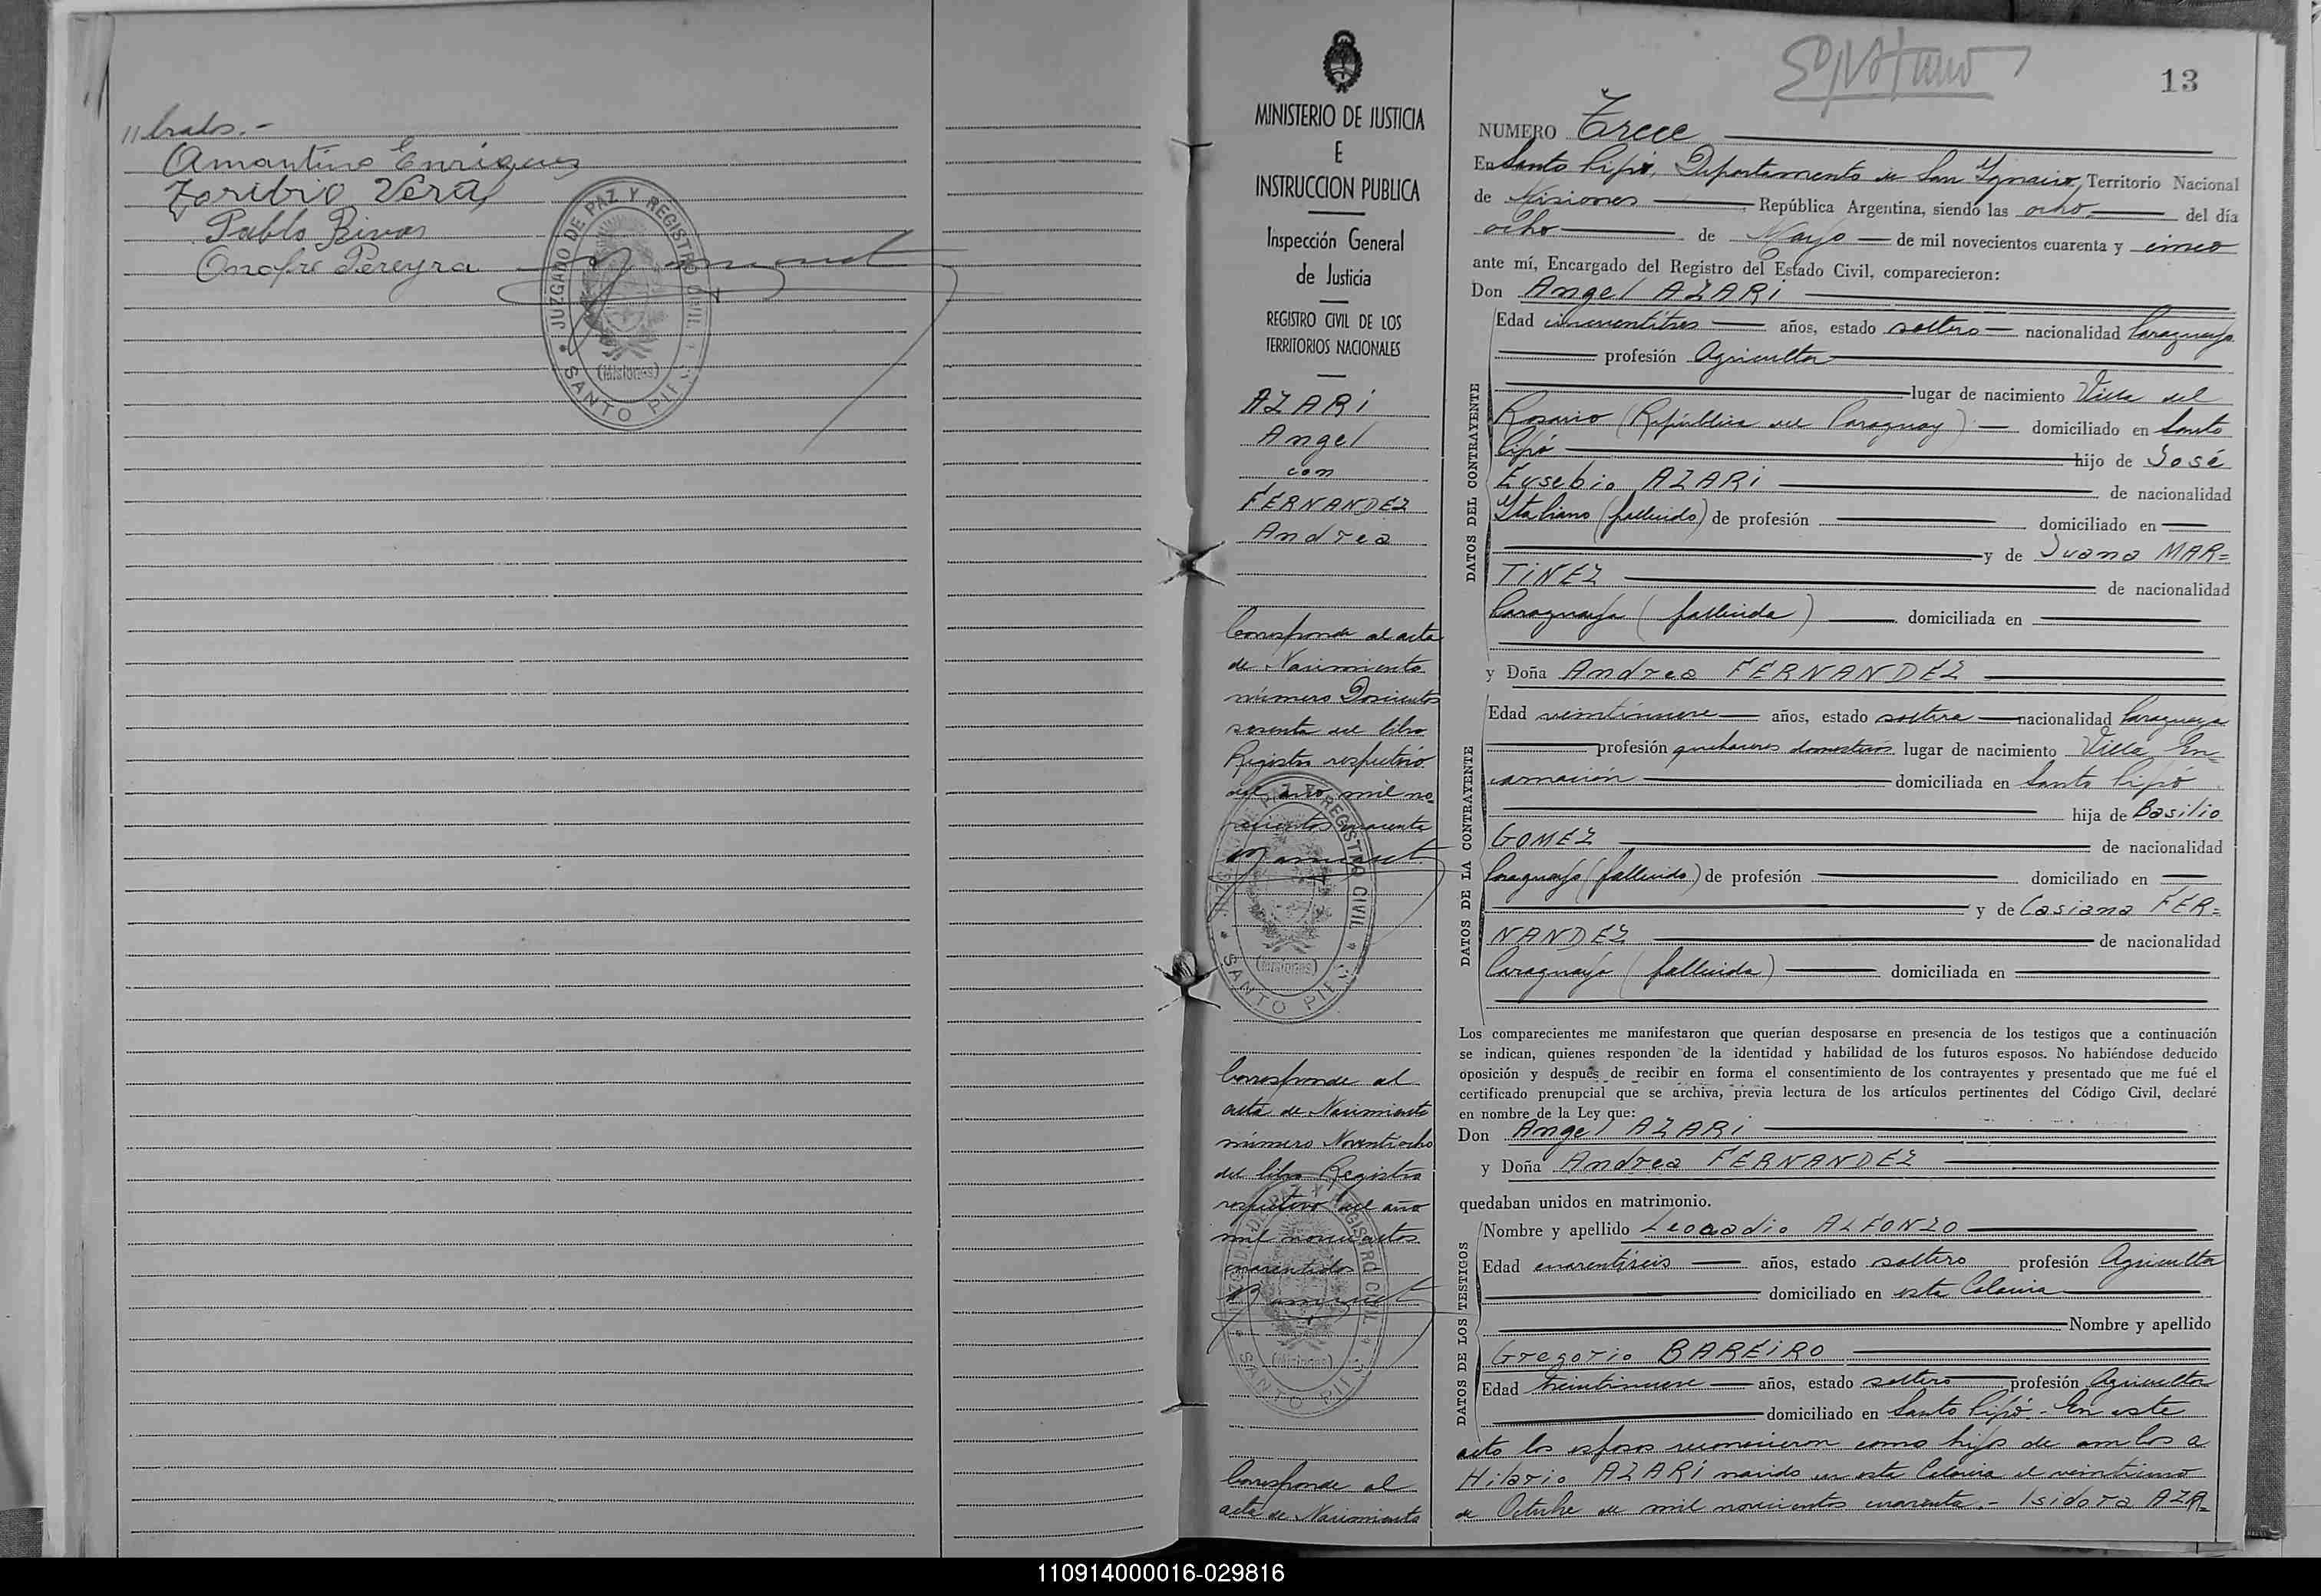 11 brals.-
Amantino Enriques
Toribio Vera
Pablo Rivas
Onofre Pereyra
JUZGADO DE PAZ Y REGISTRO CIVIL
(Misiones)
SANTO PIPÓ
MINISTERIO DE JUSTICIA
E
INSTRUCCION PUBLICA
Inspección General
de Justicia
REGISTRO CIVIL DE LOS
TERRITORIOS NACIONALES
AZARI
Angel
con
FERNANDEZ
Andrea
Corresponde al acta
de Nacimiento
número Doscientos
sesenta del libro
Registro respectivo
del año mil no=
vecientos cuarenta
JUZGADO DE PAZ Y REGISTRO CIVIL
(Misiones)
SANTO PIPÓ
Corresponde al
acta de Nacimiento
número Noventiocho
del libro Registro
respectivo del año
mil novecientos
cuarentidos
JUZGADO DE PAZ Y REGISTRO CIVIL
(Misiones)
SANTO PIPÓ
Corresponde al
acta de Nacimiento
13
NUMERO Trece
En Santo Pipó, Departamento de San Ignacio, Territorio Nacional
de Misiones República Argentina, siendo las ocho del día
ocho de Mayo de mil novecientos cuarenta y cinco
ante mí, Encargado del Registro del Estado Civil, comparecieron:
Don Angel AZARI
DATOS DEL CONTRAYENTE
Edad cincuentitres años, estado soltero nacionalidad Paraguaya
profesión Agricultor
lugar de nacimiento Villa del
Rosario (República del Paraguay) domiciliado en Santo
Pipó hijo de José
Eusebio AZARI de nacionalidad
Italiano (fallecido) de profesión domiciliado en
y de Juana MAR=
TINEZ de nacionalidad
Paraguaya (fallecida) domiciliada en
y Doña Andrea FERNANDEZ
DATOS DE LA CONTRAYENTE
Edad veintinueve años, estado soltera nacionalidad Paraguaya
profesión quehaceres domesticos lugar de nacimiento Villa En=
carnación domiciliada en Santo Pipó
hija de Basilio
GOMEZ de nacionalidad
Paraguayo (fallecido) de profesión domiciliado en
y de Casiana FER=
NANDEZ de nacionalidad
Paraguaya (fallecida) domiciliada en
Los comparecientes me manifestaron que querían desposarse en presencia de los testigos que a continuación
se indican, quienes responden de la identidad y habilidad de los futuros esposos. No habiéndose deducido
oposición y después de recibir en forma el consentimiento de los contrayentes y presentado que me fué el
certificado prenupcial que se archiva, previa lectura de los artículos pertinentes del Código Civil, declaré
en nombre de la Ley que:
Don Angel AZARI
y Doña Andrea FERNANDEZ
quedaban unidos en matrimonio.
DATOS DE LOS TESTIGOS
Nombre y apellido Leocadio ALFONZO
Edad cuarentiséis años, estado soltero profesión Agricultor
domiciliado en esta Colonia
Nombre y apellido
Gregorio BAREIRO
Edad treintinueve años, estado soltero profesión Agricultor
domiciliado en Santo Pipó.- En este
acto los esposos reconocieron como hijos de ambos a
Hilario AZARI nacido en esta Colonia el veintiuno
de Octubre de mil novecientos cuarenta.- Isidora AZA=
110914000016-029816